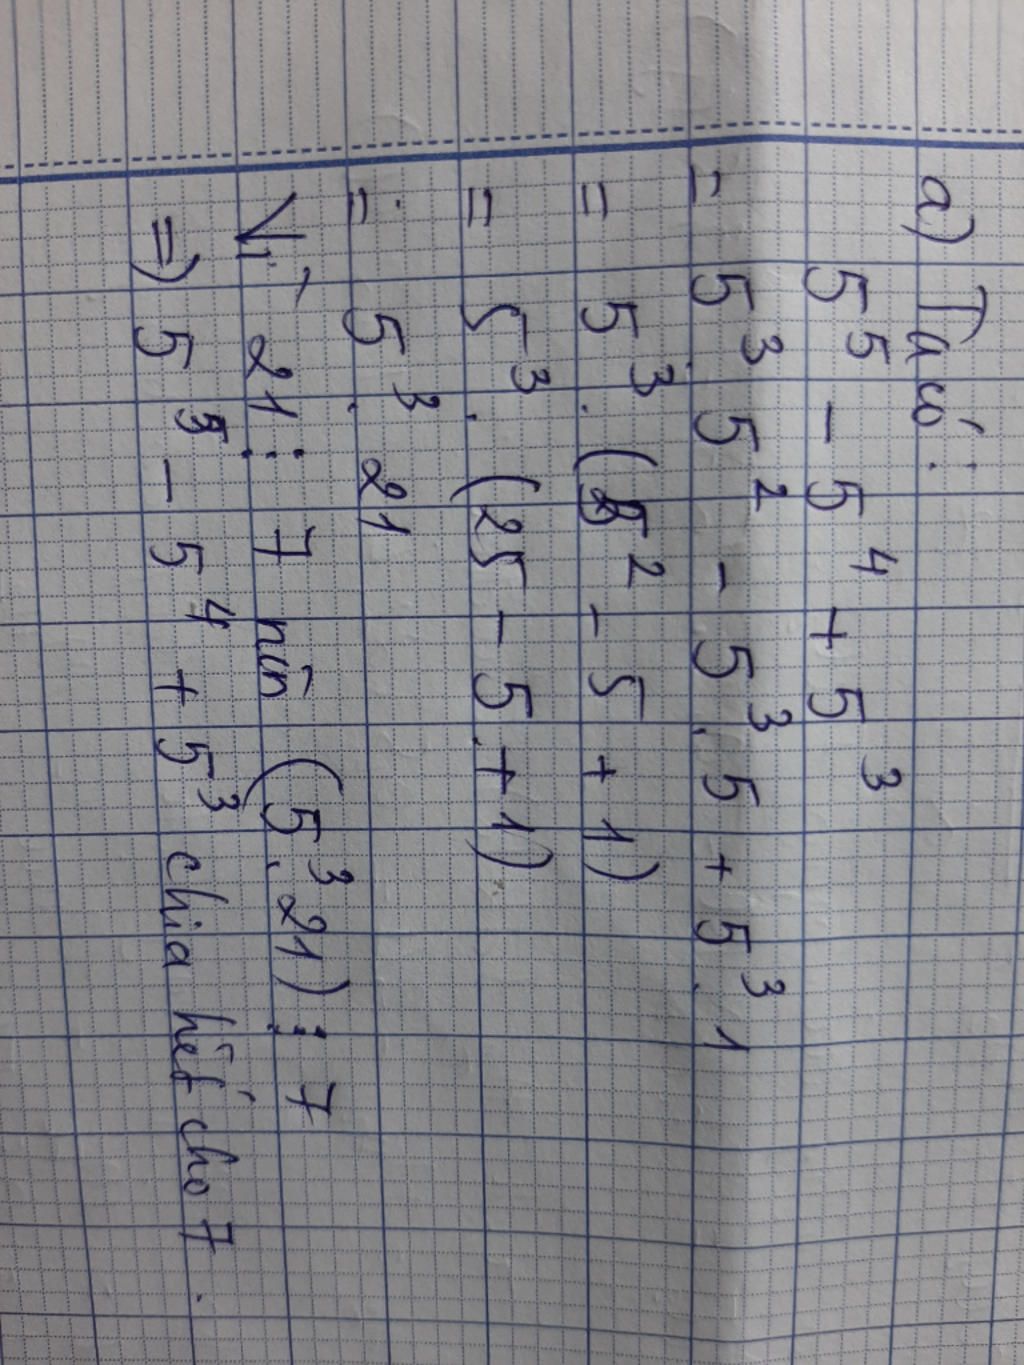 a) Ta có:
5⁵ - 5⁴ + 5³
= 5³. 5² - 5³. 5 + 5³. 1
= 5³. (5² - 5 + 1)
= 5³. (25 - 5 + 1)
= 5³. 21
Vì 21 ⋮ 7 nên (5³. 21) ⋮ 7
=) 5⁵ - 5⁴ + 5³ chia hết cho 7.